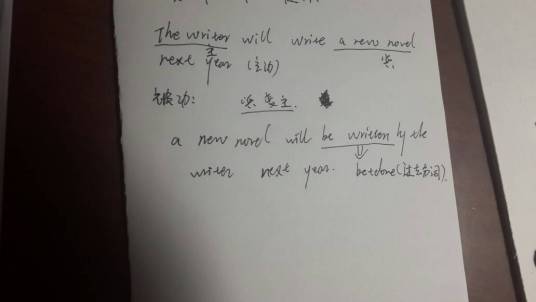 The writer will write a new novel
主 宾
next year (主动)
被动: 宾变主.
a new novel will be written by the
writer next year. be+done(过去分词).